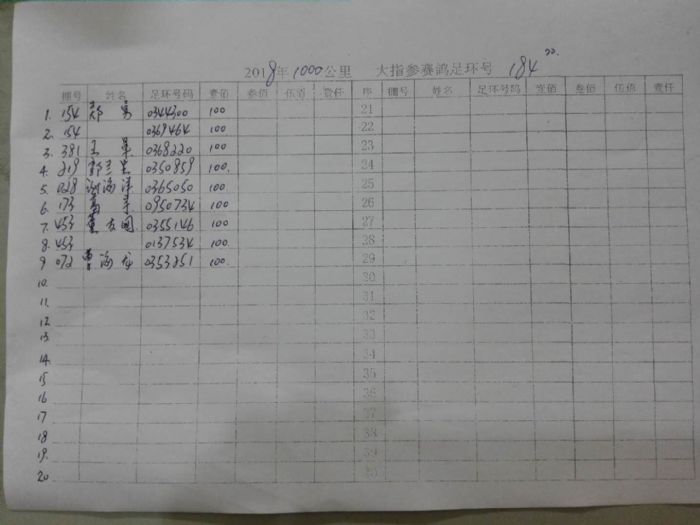 2018年1000公里 大指参赛鸿足环号 184
棚号 姓名 足环号码 壹佰 叁佰 伍佰 壹仟 序 棚号 姓名 足环号码 壹佰 叁佰 伍佰 壹仟
1. 154 郑 0344300 100 21
2. 154 0369464 100 22
3. 381 王 0368220 100 23
4. 219 0350859 100. 24
5. 028 海洋 0365050 100 25
6. 173 0950734 100 26
7. 453 0355146 100 27
8. 453 0137534 100 28
9 072 海龙 0353251 100 29
10. 30
11. 31
12 32
13. 33
14. 34
15 35
16 36
17 37
18 38
19. 39
20 40